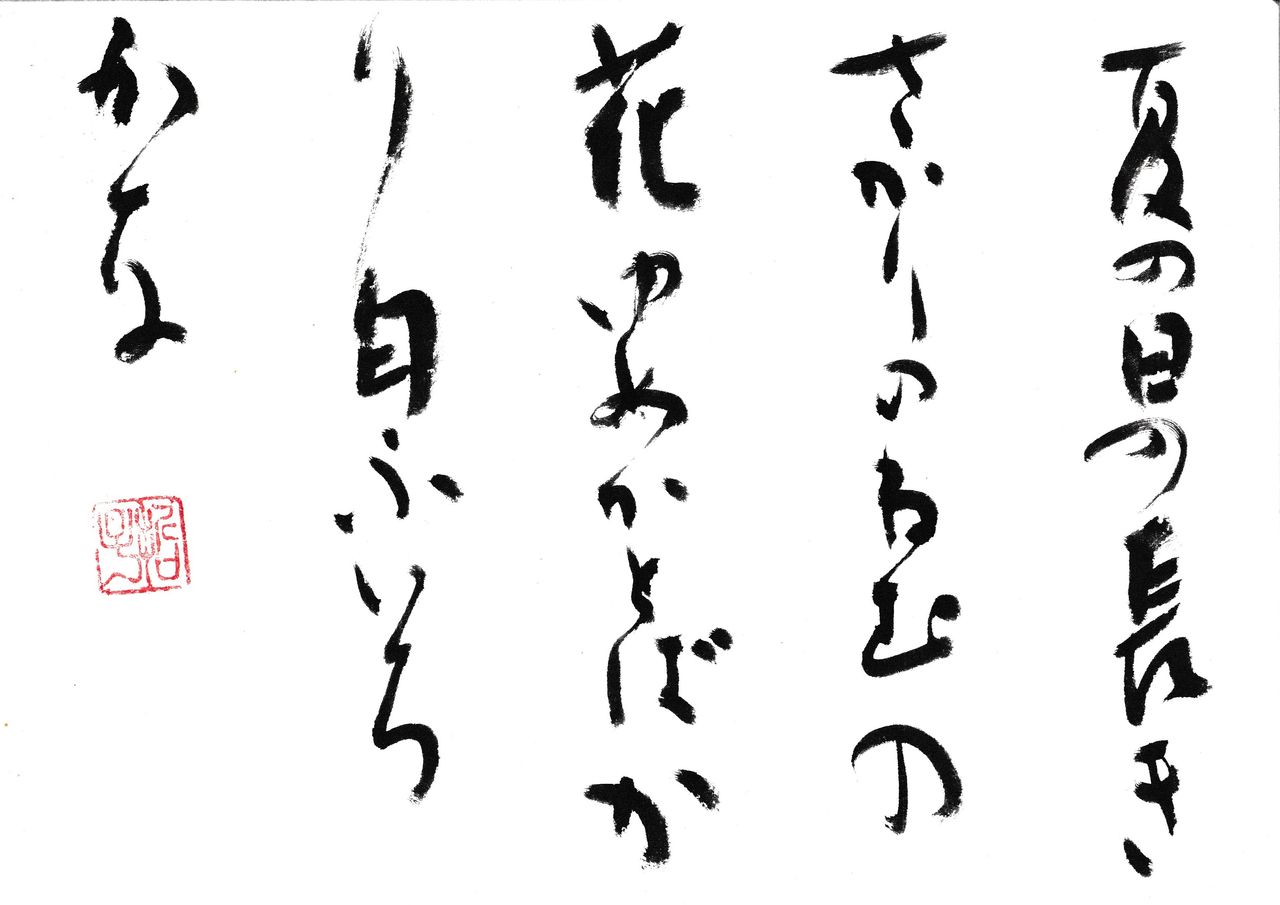 夏の日の長き
さかりのねむの
花ゆめかとばか
り日ふいろ
かな